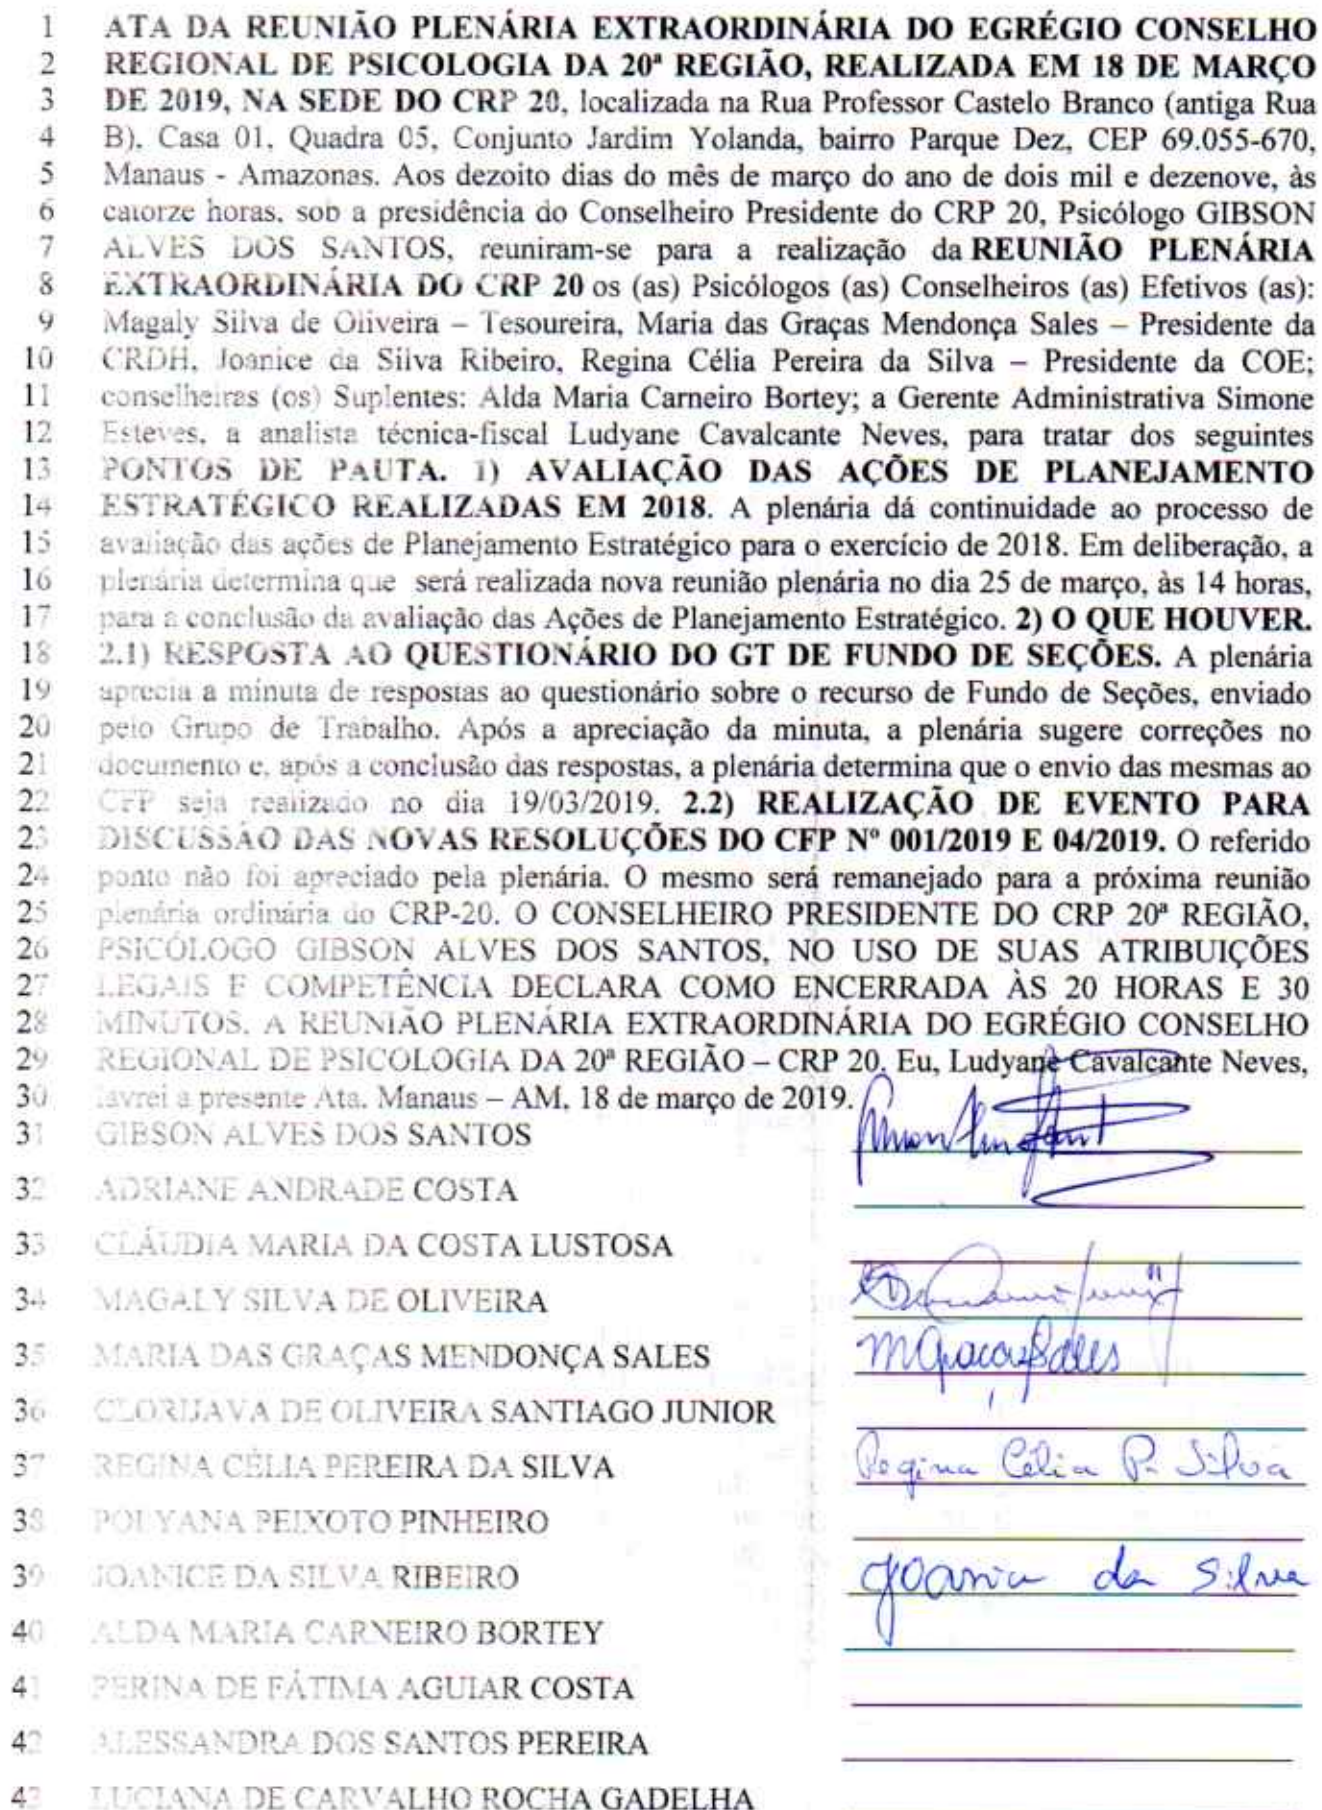 1 ATA DA REUNIÃO PLENÁRIA EXTRAORDINÁRIA DO EGRÉGIO CONSELHO
2 REGIONAL DE PSICOLOGIA DA 20ª REGIÃO, REALIZADA EM 18 DE MARÇO
3 DE 2019, NA SEDE DO CRP 20, localizada na Rua Professor Castelo Branco (antiga Rua
4 B), Casa 01, Quadra 05, Conjunto Jardim Yolanda, bairro Parque Dez, CEP 69.055-670,
5 Manaus - Amazonas. Aos dezoito dias do mês de março do ano de dois mil e dezenove, às
6 catorze horas, sob a presidência do Conselheiro Presidente do CRP 20, Psicólogo GIBSON
7 ALVES DOS SANTOS, reuniram-se para a realização da REUNIÃO PLENÁRIA
8 EXTRAORDINÁRIA DO CRP 20 os (as) Psicólogos (as) Conselheiros (as) Efetivos (as):
9 Magaly Silva de Oliveira – Tesoureira, Maria das Graças Mendonça Sales – Presidente da
10 CRDH, Joanice da Silva Ribeiro, Regina Célia Pereira da Silva – Presidente da COE;
11 conselheiras (os) Suplentes: Alda Maria Carneiro Bortey; a Gerente Administrativa Simone
12 Esteves, a analista técnica-fiscal Ludyane Cavalcante Neves, para tratar dos seguintes
13 PONTOS DE PAUTA. 1) AVALIAÇÃO DAS AÇÕES DE PLANEJAMENTO
14 ESTRATÉGICO REALIZADAS EM 2018. A plenária dá continuidade ao processo de
15 avaliação das ações de Planejamento Estratégico para o exercício de 2018. Em deliberação, a
16 plenária determina que será realizada nova reunião plenária no dia 25 de março, às 14 horas,
17 para a conclusão da avaliação das Ações de Planejamento Estratégico. 2) O QUE HOUVER.
18 2.1) RESPOSTA AO QUESTIONÁRIO DO GT DE FUNDO DE SEÇÕES. A plenária
19 aprecia a minuta de respostas ao questionário sobre o recurso de Fundo de Seções, enviado
20 pelo Grupo de Trabalho. Após a apreciação da minuta, a plenária sugere correções no
21 documento e, após a conclusão das respostas, a plenária determina que o envio das mesmas ao
22 CFP seja realizado no dia 19/03/2019. 2.2) REALIZAÇÃO DE EVENTO PARA
23 DISCUSSÃO DAS NOVAS RESOLUÇÕES DO CFP Nº 001/2019 E 04/2019. O referido
24 ponto não foi apreciado pela plenária. O mesmo será remanejado para a próxima reunião
25 plenária ordinária do CRP-20. O CONSELHEIRO PRESIDENTE DO CRP 20ª REGIÃO,
26 PSICÓLOGO GIBSON ALVES DOS SANTOS, NO USO DE SUAS ATRIBUIÇÕES
27 LEGAIS E COMPETÊNCIA DECLARA COMO ENCERRADA ÀS 20 HORAS E 30
28 MINUTOS, A REUNIÃO PLENÁRIA EXTRAORDINÁRIA DO EGRÉGIO CONSELHO
29 REGIONAL DE PSICOLOGIA DA 20ª REGIÃO – CRP 20. Eu, Ludyane Cavalcante Neves,
30 lavrei a presente Ata. Manaus – AM, 18 de março de 2019.
31 GIBSON ALVES DOS SANTOS
32 ADRIANE ANDRADE COSTA
33 CLÁUDIA MARIA DA COSTA LUSTOSA
34 MAGALY SILVA DE OLIVEIRA
35 MARIA DAS GRAÇAS MENDONÇA SALES MGraçasSales
36 CLORIJAVA DE OLIVEIRA SANTIAGO JUNIOR
37 REGINA CÉLIA PEREIRA DA SILVA Regina Célia P. Silva
38 POLYANA PEIXOTO PINHEIRO
39 JOANICE DA SILVA RIBEIRO Joanice da Silva
40 ALDA MARIA CARNEIRO BORTEY
41 PERINA DE FÁTIMA AGUIAR COSTA
42 ALESSANDRA DOS SANTOS PEREIRA
43 LUCIANA DE CARVALHO ROCHA GADELHA